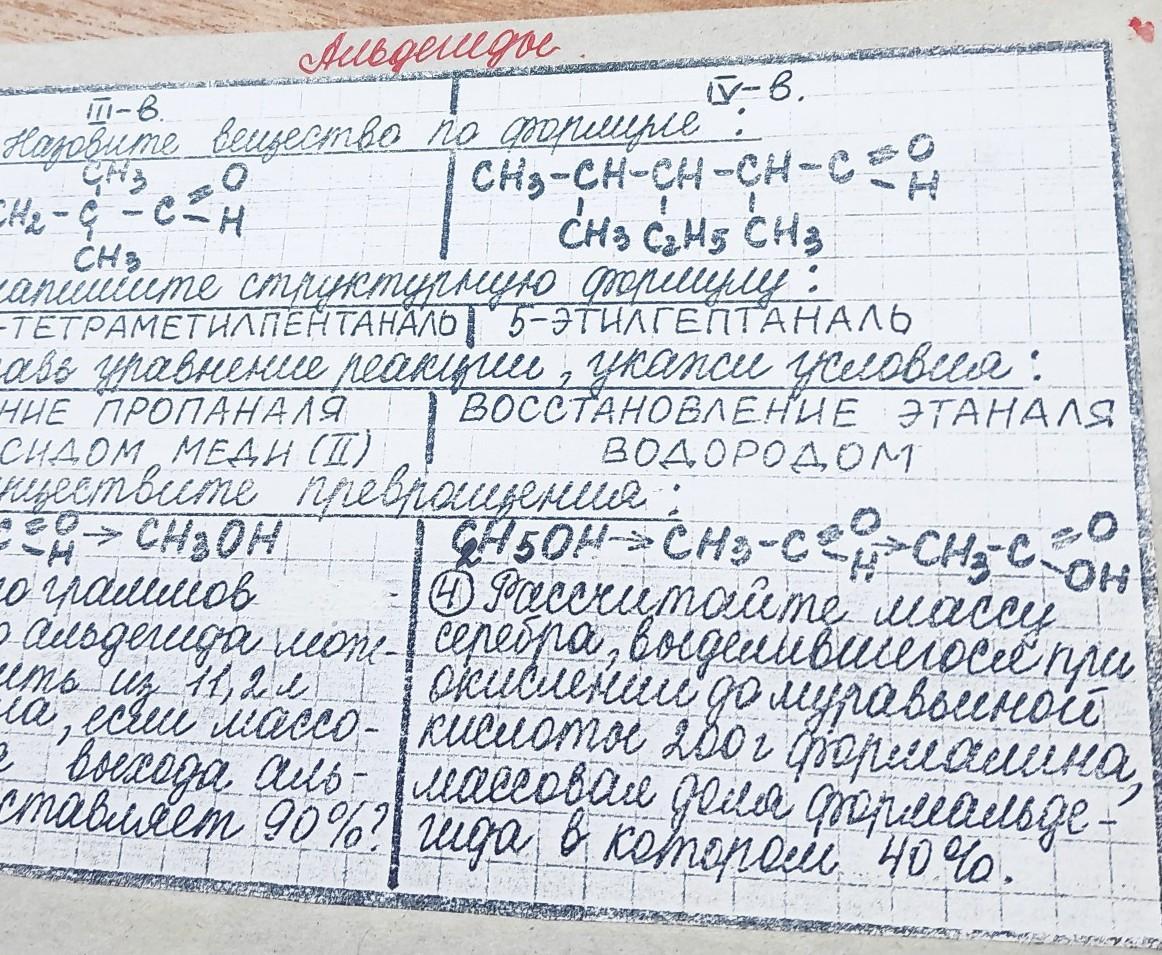 Альдегиды
III-в. IV-в.
Назовите вещество по формуле :
CH3 O CH3-CH-CH-CH-C=O
CH2-C-C-H -H
CH3 CH3 C2H5 CH3
напишите структурную формулу :
-ТЕТРАМЕТИЛПЕНТАНАЛЬ 5-ЭТИЛГЕПТАНАЛЬ
авь уравнение реакции, укажи условия :
НИЕ ПРОПАНАЛЯ ВОССТАНОВЛЕНИЕ ЭТАНАЛЯ
СИДОМ МЕДИ (II) ВОДОРОДОМ
уществите превращения :
C=O-H → CH3OH C2H5OH → CH3-C=O-H → CH3-C=O-OH
о граммов
о альдегида мож-
ить из 11,2 л
ла, если массо-
выхода аль-
ставляет 90%?
4 Рассчитайте массу
серебра, выделившегося при
окислении до муравьиной
кислоты 200 г формалина,
массовая доля формальде-
гида в котором 40%.